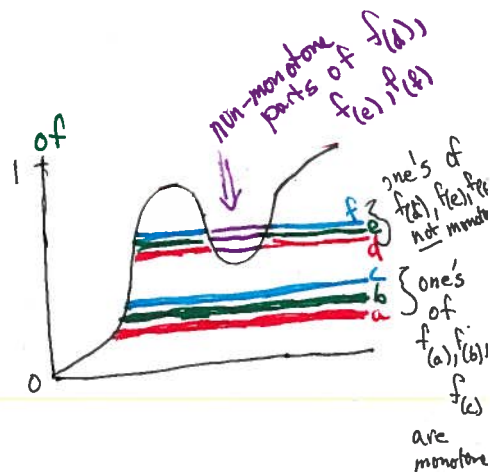 non-monotone
parts of f(d),
f(e), f(f)
of
1
one's of
f(d), f(e), f(f)
not monoto
f
e
d
c
b
a
one's
of
f(a), f(b),
f(c)
are
monotone
0